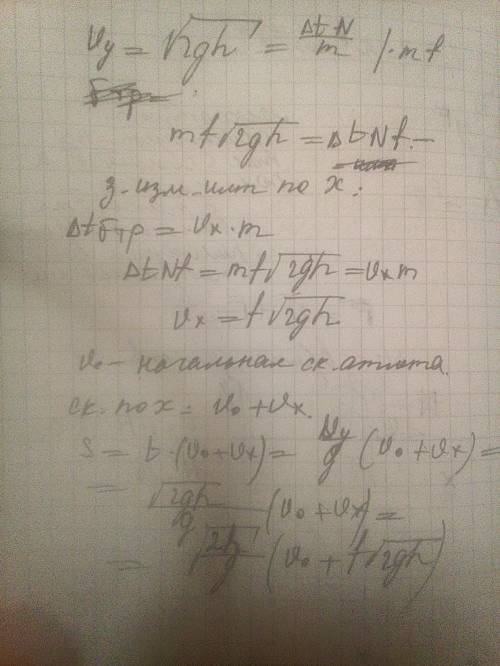 Vy = √2gh = Δt N / m | · m f
Fтр
mf√2gh = ΔtNf. –
з-изм. имп по x:
Δt Fтр = Vx · m
ΔtNf = mf√2gh = Vx m
Vx = f√2gh
V₀ – начальная ск. атлета.
ск. по x = V₀ + Vx.
S = t · (V₀ + Vx) = Vy/g (V₀ + Vx) =
= √2gh/g (V₀ + Vx) =
= √2h/g (V₀ + f√2gh)